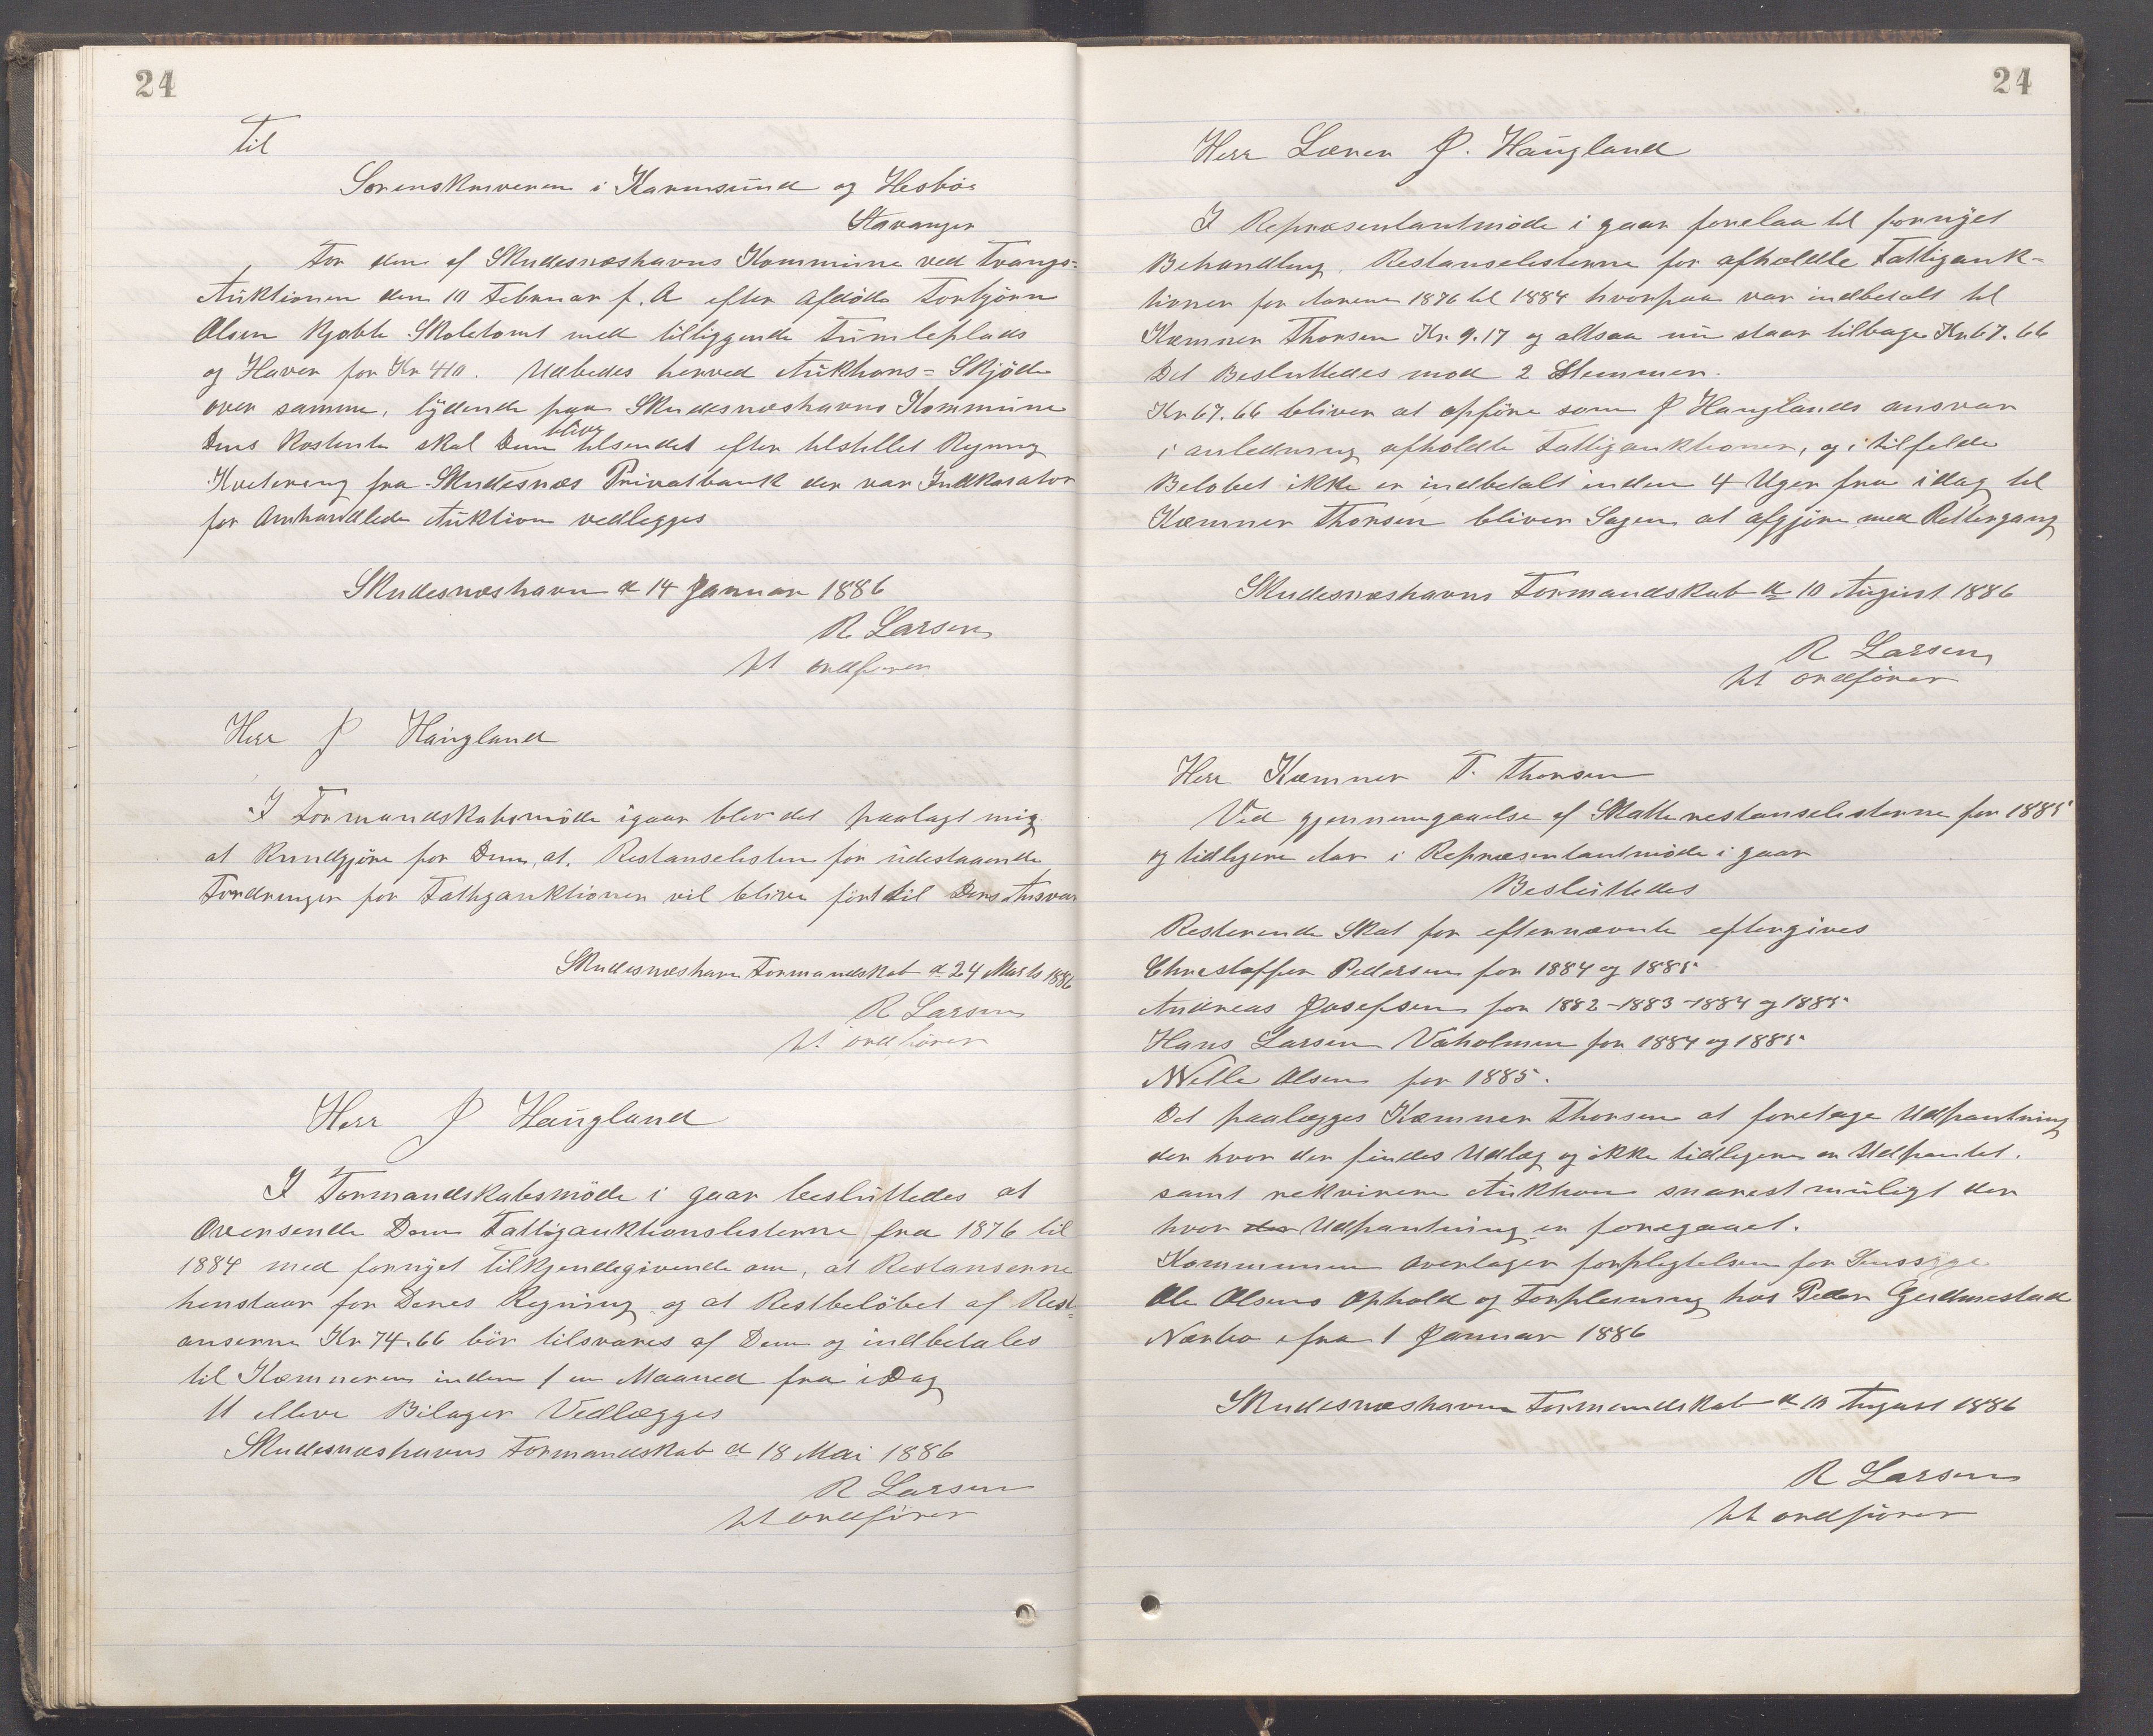 24
Til
Sorenskriveren i Karmsund og Hesbø
Stavanger
For den af Skudesnæshavns Kommune ved Tvangs=
Auktionen den 10 Februar f. A efter afdøde Torbjørn
Olsen kjøbte Skoletomt med tilliggende Tumleplads
og Haver for Kr 410. Udbedes herved Auktions=Skjöde
over samme, lydende paa Skudesnæshavns Kommune
Deres Kostende skal Dem blive tilsendet efter tilstillet Regning
Kvitering fra Skudesnæs Privatbank der var Indkasator
for Omhandlede Auktion vedlegges
Skudesnæshavn d 14 Januar 1886
R Larsen
ht ordfører
Herr J Haugland
I Formandskabsmöde igaar blev det paalagt mig
at kundgjöre for Dem, at Restanselisten for udestaaende
Fordringer for Fattigauktioner vil blive fört til Deres Ansvar
Skudesnæshavn Formandskab d 24 Marts 1886
R Larsen
ht ordförer
Herr J Haugland
I Formandskabsmöde i gaar besluttedes at
Oversende Dem Fattigauktionslisterne fra 1876 til
1884 med fornyet Tilkjendegivende om, at Restanserne
henstaar for Deres Regning og at Restbelöbet af Rest=
anserne Kr 74.66 bör tilsvares af Dem og indbetales
til Kæmneren inden 1 en Maaned fra i Dag
11 elleve Bilager Vedlægges
Skudesnæshavns Formandskab d 18 Mai 1886
R Larsen
ht ordförer
24
Herr Lærer J. Haugland
I Repræsentantmöde i gaar forelaa til fornyet
Behandling. Restanselisterne for afholdte Fattigauk=
tioner for Aarene 1876 til 1884 hvorpaa var indbetalt til
Kæmner Thorsen Kr. 9.17 og altsaa nu staar tilbage Kr 67.66
Det Besluttedes mod 2 Stemmer.
Kr 67.66 bliver at opföre som J Hauglands ansvar
i anledning afholdte Fattigauktioner, og i tilfelde
Belöbet ikke er indbetalt inden 4 Uger fra idag til
Kæmner Thorsen bliver Sagen at afgjöre med Rettergang
Skudesnæshavns Formandskab d 10 August 1886
R Larsen
ht ordförer
Herr Kæmner T. Thorsen
Ved gjennemgaaelse af Skatterestanselisterne for 1885
og tidligere Aar i Repræsentantmöde i gaar
Besluttedes
Resterende Skat for efternævnte eftergives
Christoffer Pedersen for 1884 og 1885
Andreas Josefsen for 1882-1883-1884 og 1885
Hans Larsen Vaholmen for 1884 og 1885
Nille Olsen for 1885.
Det paalegges Kæmner Thorsen at foretage Udpantning
der hvor der findes Udlæg og ikke tidligere er Udpantet.
samt rekvirere Auktion snarest muligt der
hvor der Udpantning er foregaaet.
Kommunen overtager forpligtelsen for Sinssyge
Ole Olsens Ophold og Forpleining hos Peder
Nærbø fra 1 Januar 1886
Skudesnæshavn Formandskab d 10 August 1886
R Larsen
ht ordförer